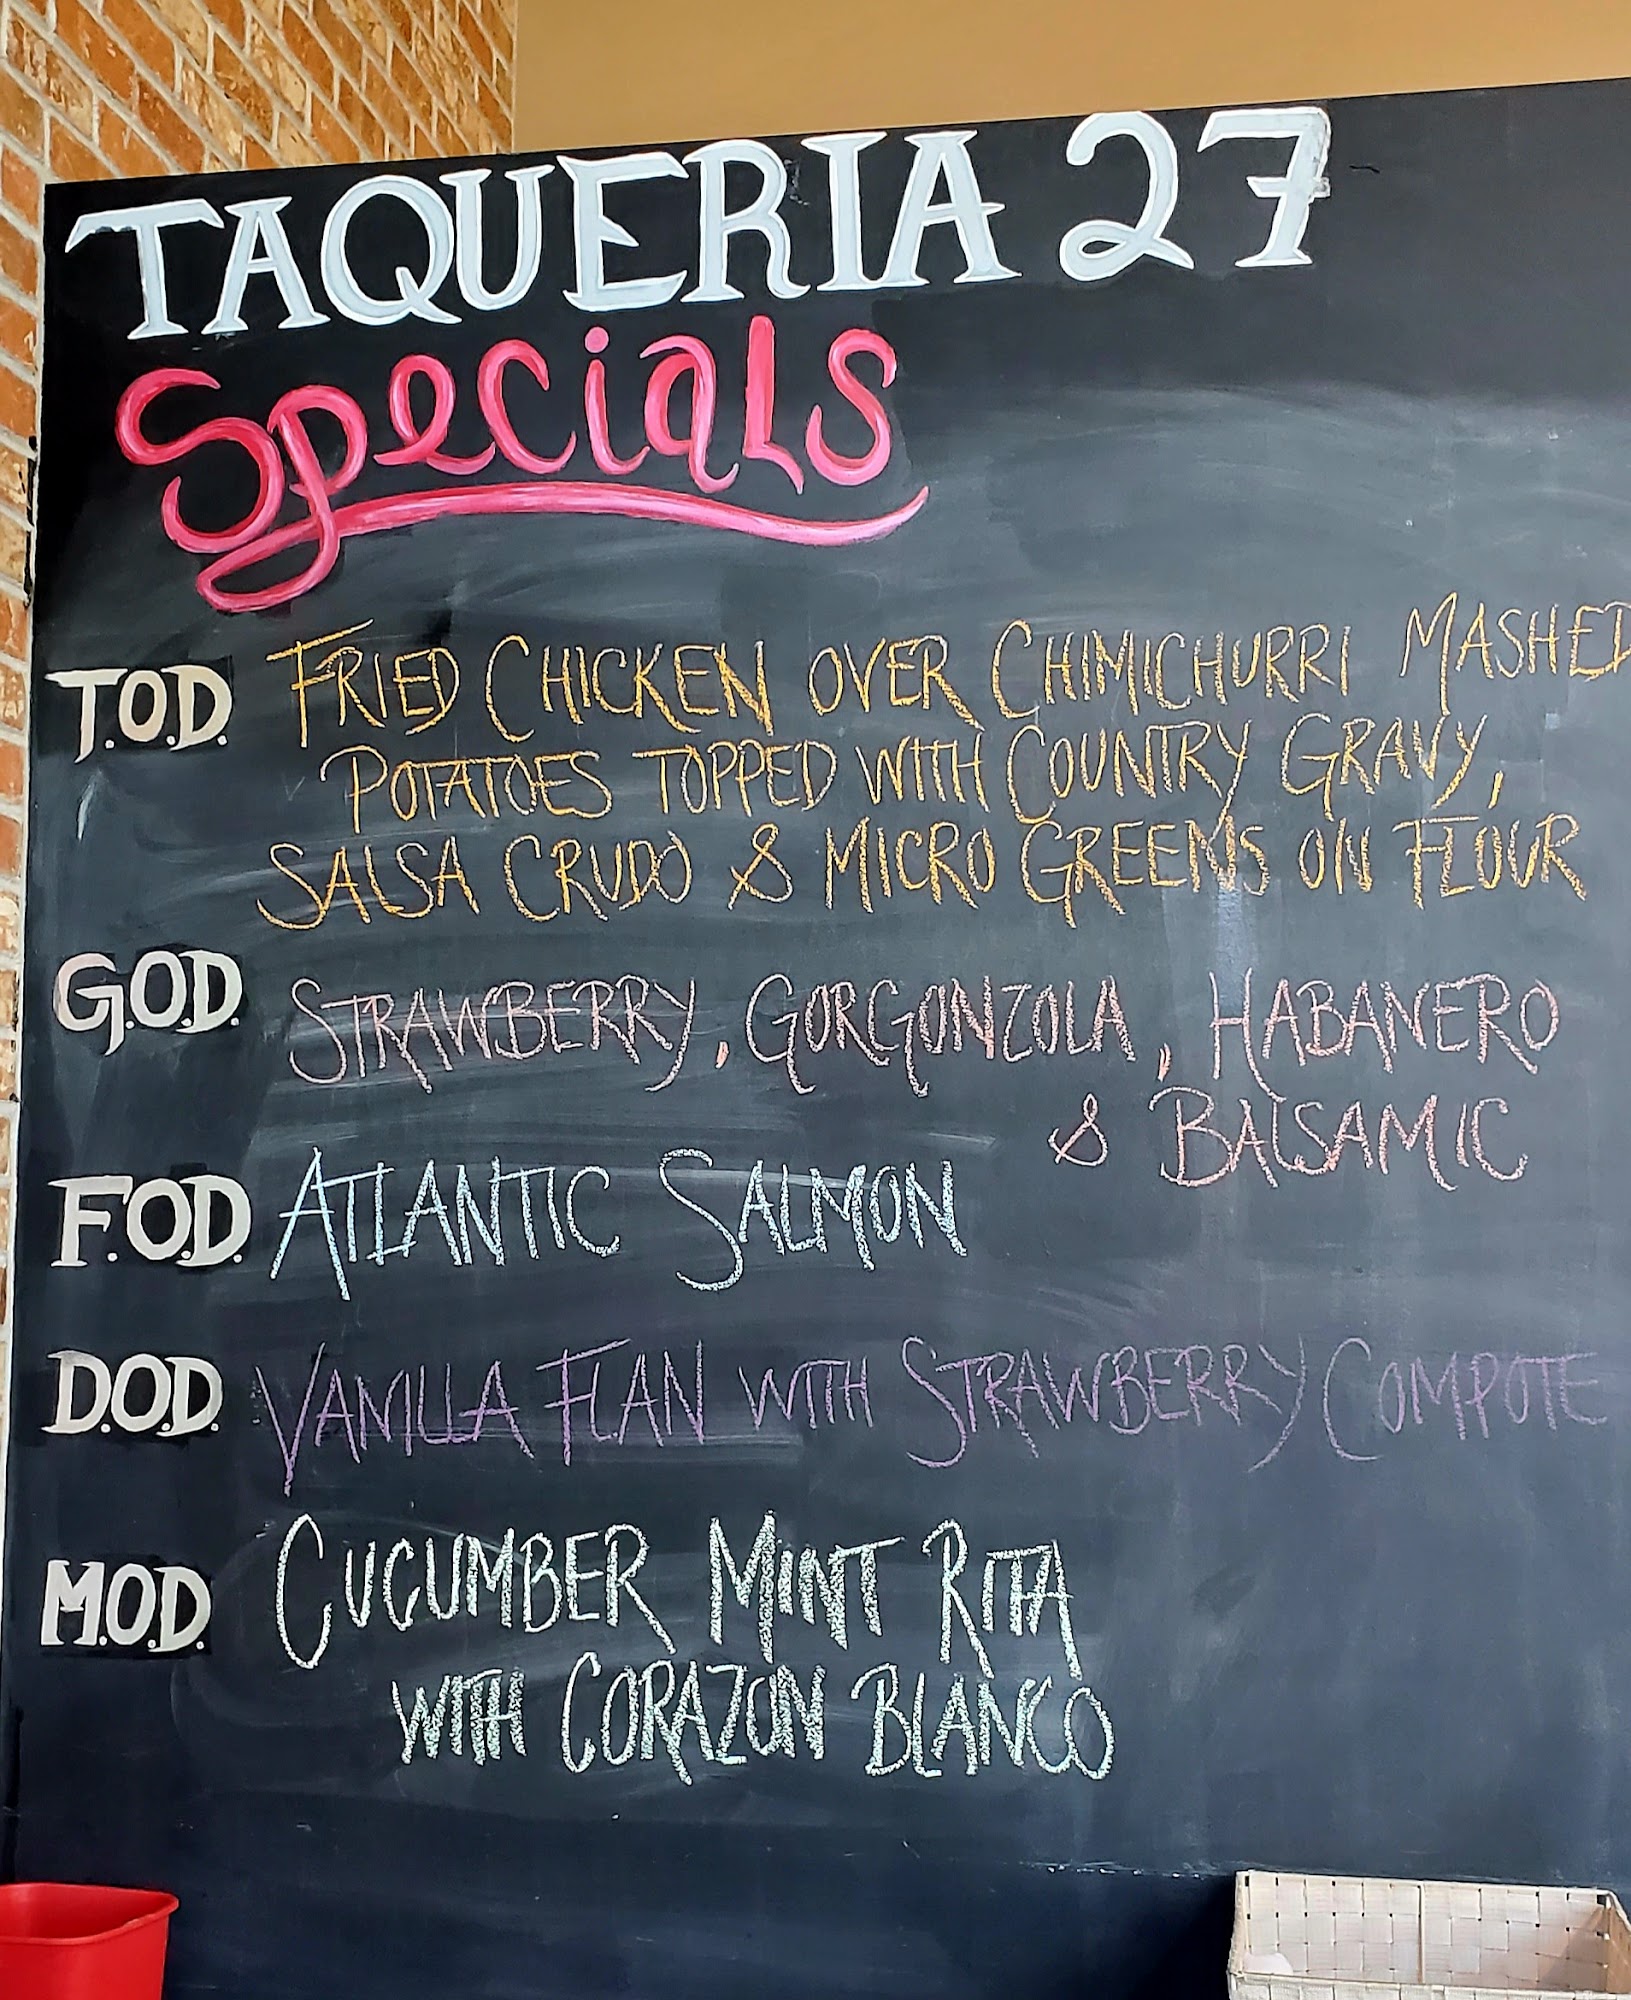 TAQUERIA 27
Specials
T.O.D. FRIED CHICKEN OVER CHIMICHURRI MASHED
POTATOES TOPPED WITH COUNTRY GRAVY,
SALSA CRUDO & MICRO GREENS ON FLOUR
G.O.D. STRAWBERRY, GORGONZOLA, HABANERO
& BALSAMIC
F.O.D. ATLANTIC SALMON
D.O.D. VANILLA FLAN WITH STRAWBERRY COMPOTE
M.O.D. CUCUMBER MINT RITA
WITH CORAZON BLANCO